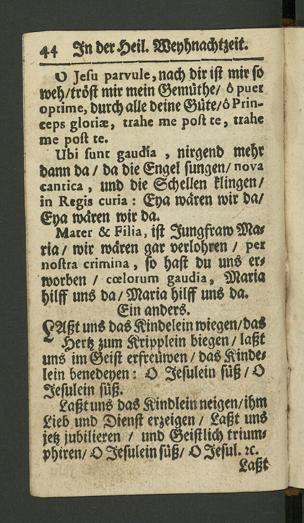 44 In der Heil. Weyhnachtzeit.
O Jesu parvule, nach dir ist mir so
weh/ tröst mir mein Gemüthe/ ô puer
optime, durch alle deine Güte/ ô Prin-
ceps gloriæ, trahe me post te, trahe
me post te.
Ubi sunt gaudia, nirgend mehr
dann da/ da die Engel sungen/ nova
cantica, und die Schellen klingen/
in Regis curia: Eya wären wir da/
Eya wären wir da.
Mater & Filia, ist Jungfraw Ma-
ria/ wir wären gar verlohren/ per
nostra crimina, so hast du uns er-
worben/ cœlorum gaudia, Maria
hilff uns da/ Maria hilff uns da.
Ein anders.
LAßt uns das Kindelein wiegen/ das
Hertz zum Kripplein biegen/ laßt
uns im Geist erfreüwen/ das Kinde-
lein benedeyen: O Jesulein süß/ O
Jesulein süß.
Laßt uns das Kindlein neigen/ ihm
Lieb und Dienst erzeigen/ Laßt uns
jetz jubilieren/ und Geistlich trium-
phiren/ O Jesulein süß/ O Jesul. ꝛc.
Laßt